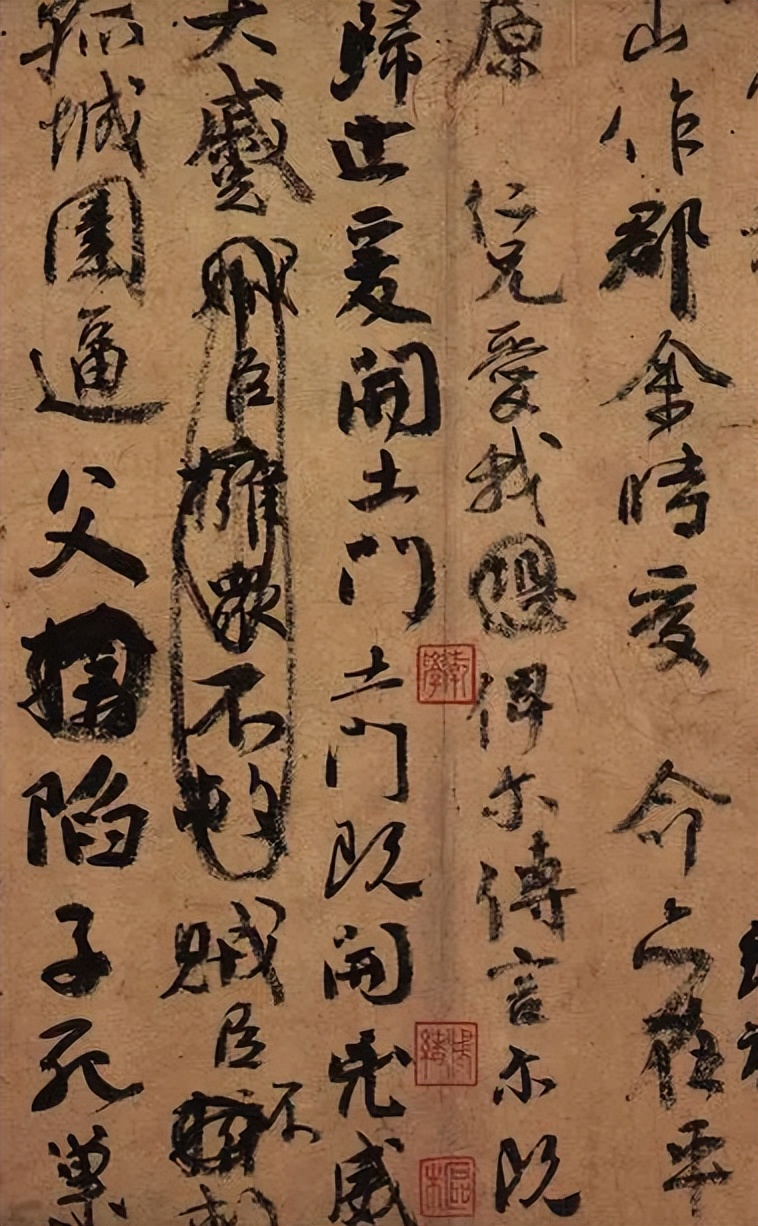 山作郡余時受 命亦在平
原 仁兄愛我恐俾尔傳言尔既
歸止爰開土門土門既開凶威
大蹙賊臣擁衆不救賊臣不救
孤城圍逼父陷子死巢